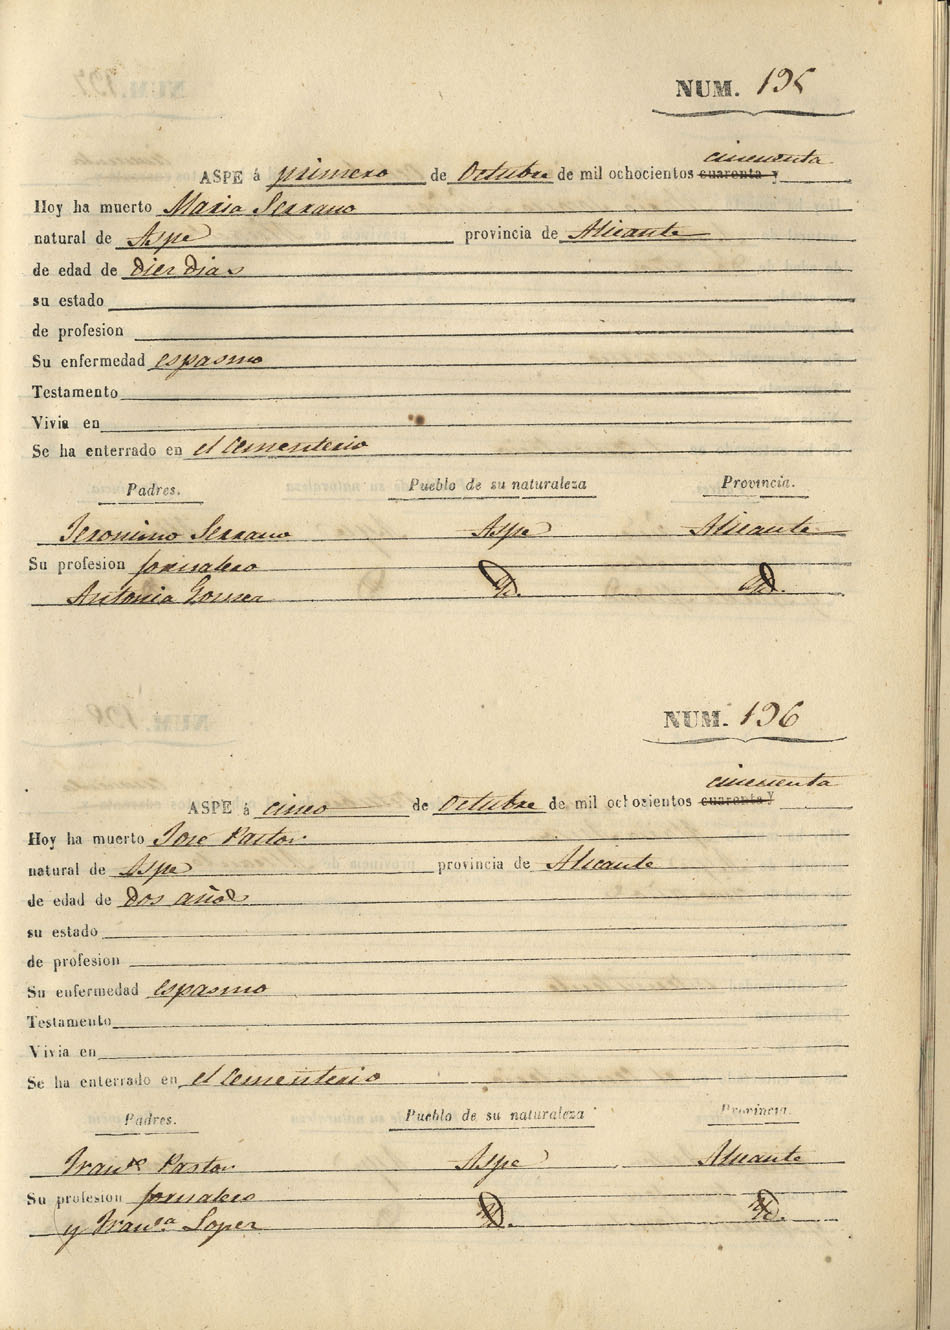 NUM. 195
cincuenta
ASPE á primero de Octubre de mil ochocientos cuarenta y
Hoy ha muerto Maria Serrano
natural de Aspe provincia de Alicante
de edad de diez dias
su estado
de profesion
Su enfermedad espasmo
Testamento
Vivia en
Se ha enterrado en el Cementerio
Padres. Pueblo de su naturaleza Provincia.
Jeronimo Serrano Aspe Alicante
Su profesion jornalero
Antonia Yd. Yd.
NUM. 196
cincuenta
ASPE á cinco de Octubre de mil ochocientos cuarenta y
Hoy ha muerto José Pastor
natural de Aspe provincia de Alicante
de edad de dos años
su estado
de profesion
Su enfermedad espasmo
Testamento
Vivia en
Se ha enterrado en el Cementerio
Padres. Pueblo de su naturaleza Provincia.
Franco Pastor Aspe Alicante
Su profesion jornalero
y Franca Lopez Yd. Yd.